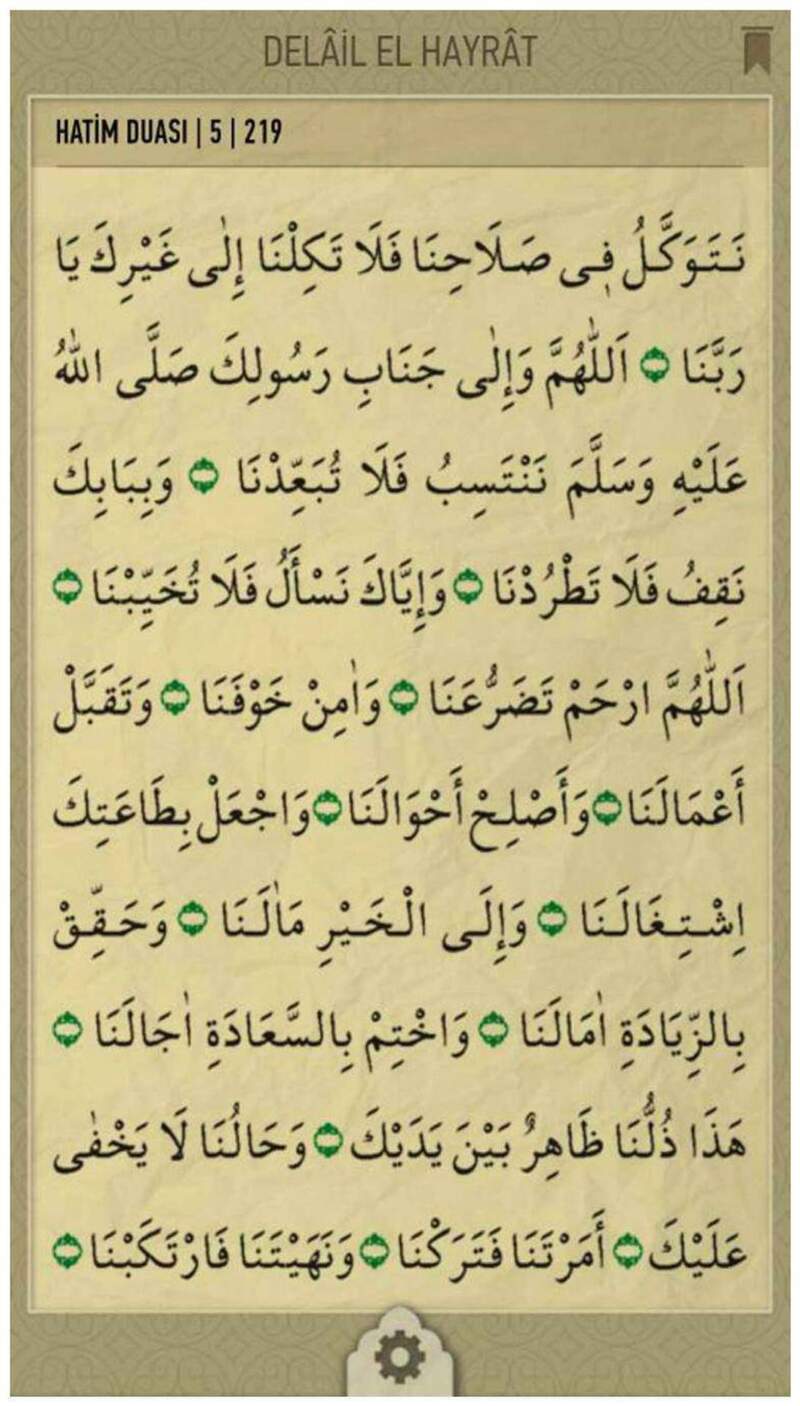 DELÂİL EL HAYRÂT
HATİM DUASI | 5 | 219
نَتَوَكَّلُ فِى صَلَاحِنَا فَلَا تَكِلْنَا إِلٰى غَيْرِكَ يَا
رَبَّنَا ۝ اَللّٰهُمَّ وَإِلٰى جَنَابِ رَسُولِكَ صَلَّى اللهُ
عَلَيْهِ وَسَلَّمَ نَنْتَسِبُ فَلَا تُبَعِّدْنَا ۝ وَبِبَابِكَ
نَقِفُ فَلَا تَطْرُدْنَا ۝ وَإِيَّاكَ نَسْأَلُ فَلَا تُخَيِّبْنَا ۝
اَللّٰهُمَّ ارْحَمْ تَضَرُّعَنَا ۝ وَاٰمِنْ خَوْفَنَا ۝ وَتَقَبَّلْ
أَعْمَالَنَا ۝ وَأَصْلِحْ أَحْوَالَنَا ۝ وَاجْعَلْ بِطَاعَتِكَ
اِشْتِغَالَنَا ۝ وَإِلَى الْخَيْرِ مَاٰلَنَا ۝ وَحَقِّقْ
بِالزِّيَادَةِ اٰمَالَنَا ۝ وَاخْتِمْ بِالسَّعَادَةِ اٰجَالَنَا ۝
هَذَا ذُلُّنَا ظَاهِرٌ بَيْنَ يَدَيْكَ ۝ وَحَالُنَا لَا يَخْفٰى
عَلَيْكَ ۝ أَمَرْتَنَا فَتَرَكْنَا ۝ وَنَهَيْتَنَا فَارْتَكَبْنَا ۝